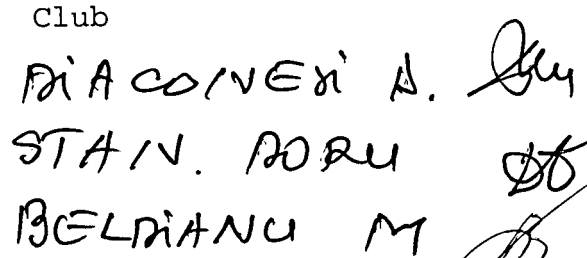 Club
DIACONESI D.
STAN. DORU
BELDIANU M